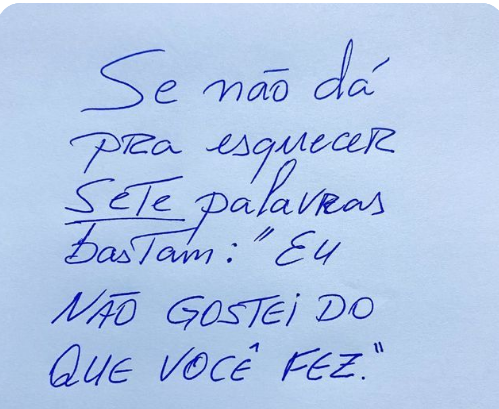 Se não dá
pra esquecer
sete palavras
bastam: "Eu
NÃO GOSTEI DO
QUE VOCÊ FEZ."